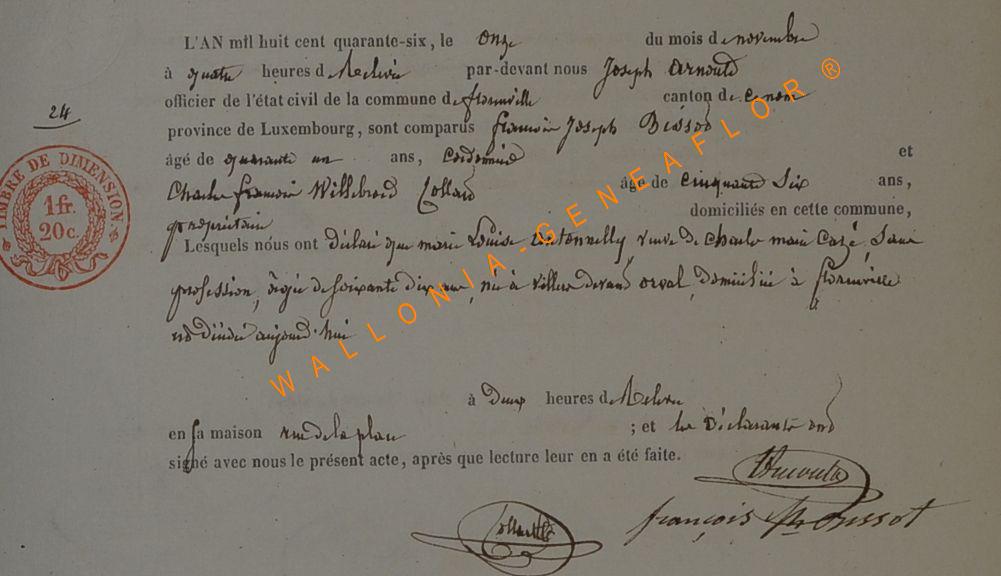 L'AN mil huit cent quarante-six, le onze du mois de novembre
à quatre heures de Relevée par-devant nous Joseph Arnould
24
officier de l'état civil de la commune de florenville canton de
province de Luxembourg, sont comparus françois Joseph
âgé de quarante un ans, Cordonnier et
Charles françois Willebrord Collard âgé de cinquante Six ans,
propriétaire domiciliés en cette commune,
Lesquels nous ont déclaré que marie Louise veuve de charles marie Sans
profession, âgée de soixante dix ans, née à villers devant orval, domiciliée à florenville
est décédée aujourd'hui
à deux heures de Relevée
en sa maison rue de la place ; et les Déclarants ont
signé avec nous le présent acte, après que lecture leur en a été faite.
françois
TIMBRE DE DIMENSION
1 fr.
20 c.
WALLONIA-GENEAFLOR®